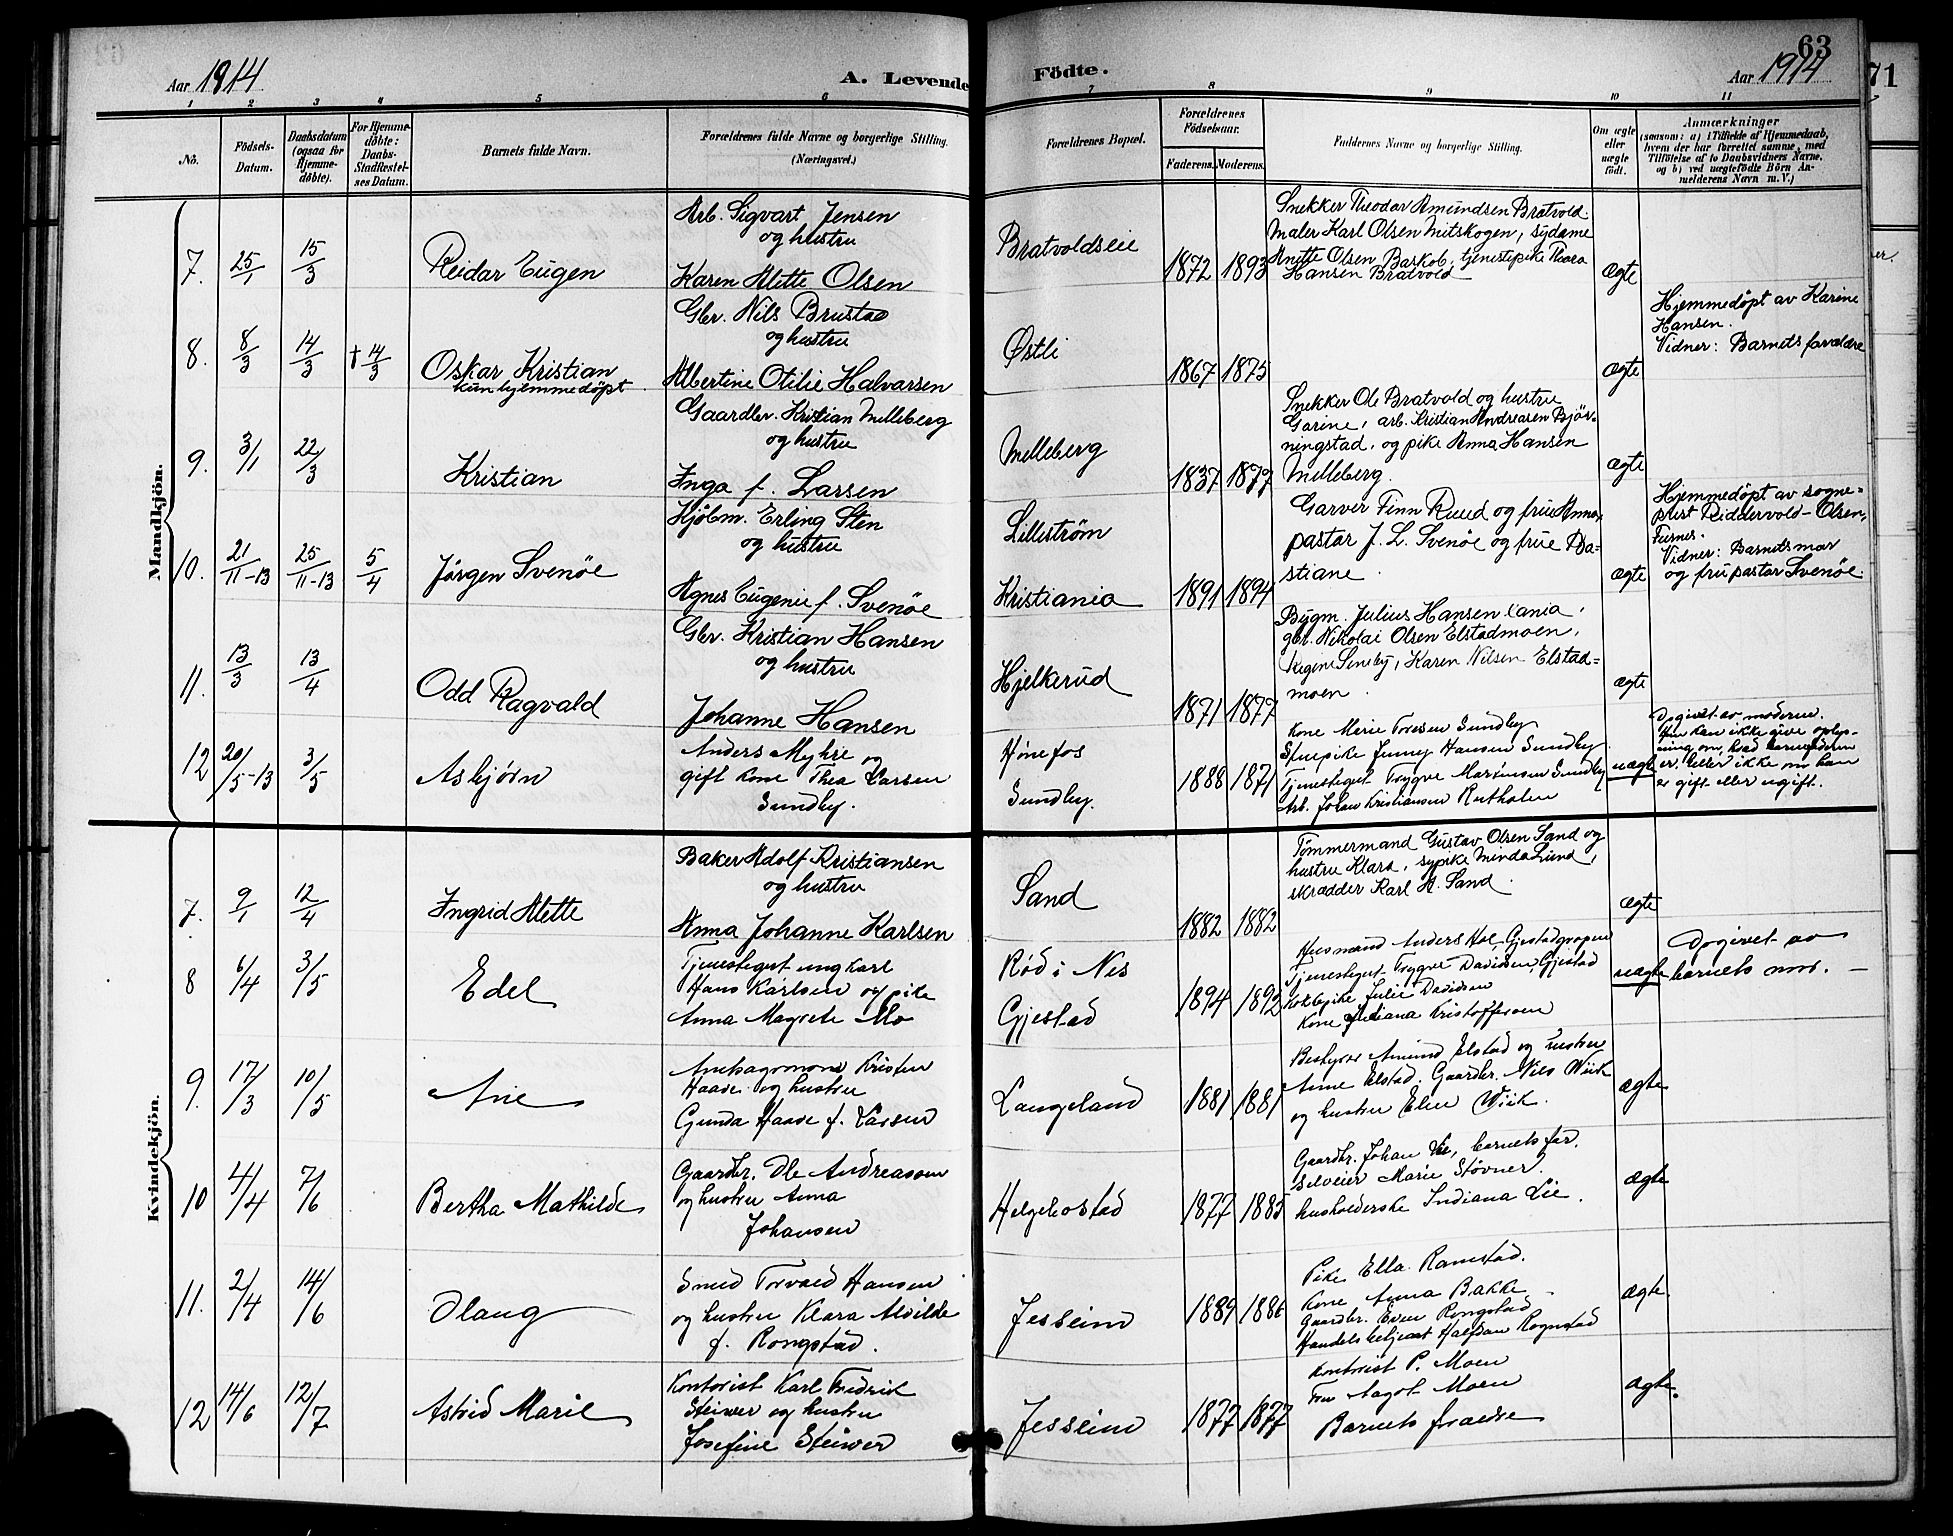 63
71
Aar 1914
A. Levende Födte.
Aar 1914
1 2 3 4 5 6 7 8 9 10 11
No.
Födsels-Datum.
Daabsdatum (ogsaa for Hjemme-döbte).
For Hjemme-döbte: Daabs-Stadfæstel-ses Datum.
Barnets fulde Navn.
Forældrenes fulde Navne og borgerlige Stilling.
(Næringsvei.)
Forældrenes Bopæl.
Forældrenes Födselsaar.
Faderens. Moderens.
Faddernes Navne og borgerlige Stilling.
Om ægte eller uægte födt.
Anmærkninger
(saasom: a) i Tilfælde af Hjemmedaab,
hvem der har forrettet samme, med
Tilföielse af to Daabsvidners Navne,
og b) ved uægtefödte Börn An-
melderens Navn m. V.)
Mandkjön.
7. 25/1 15/3 Reidar Eugen
Arb. Sigvart Jensen
og hustru
Karen Alette Olsen
Bratvoldseie
1872 1893
Snekker Theodor Amundsen Bratvold.
Maler Karl Olsen Mitskogen, sydame
Anette Olsen Baskob, tjenestepike Thora
Hansen Bratvold
ægte
8. 8/3 14/3 † 14/3 Oskar Kristian
kun hjemmedöpt
Gbr. Nils Brustad
og hustru
Albertine Otilie Halvorsen
Østli
1867 1875
ægte
Hjemmedöpt av Karine
Hansen.
Vidner: Barnets forældre
9. 3/1 22/3 Kristian
Gaardbr. Kristian Melleberg
og hustru
Inga f. Larsen
Melleberg
1837 1877
Snekker Ole Bratvold og hustru
Gorine, arb. Kristian Andreasen Bjør-
ningstad, og pike Anna Hansen
Melleberg.
ægte
10. 21/11-13 25/11-13 5/4 Jørgen Svenöe
Hjölm. Erling Sten
og hustru
Agnes Eugenie f. Svenöe
Lilleström
Kristiania
1891 1894
Garver Finn Ruud og frue Anna,
pastor J. L. Svenöe og frue Ba-
stiane.
ægte
Hjemmedöpt av sogne-
prest Riddervold-Olsen,
Furnes.
Vidner: Barnets mor
og fru pastor Svenöe.
11. 13/3 13/4 Odd Ragvald
Gbr. Kristian Hansen
og hustru
Johanne Hansen
Hjelkerud
1871 1877
Bygm. Julius Hansen Cania,
gbr. Nikolai Olsen Elstadmoen,
Seneby, Karen Nilsen Elstad-
moen.
ægte
12 20/5-13 3/5 Asbjørn
Anders Myhre og
gift kone Thea Larsen
Sundby.
Hönefos
Sundby.
1888 1871
Kone Marie Toresen Sundby
Stuepike Jenny Hansen Sundby
Tjenestegut Trygve Martinsen Sundby
Arb. Johan Kristiansen
uægte
Opgivet av moderen.
Hun kan ikke give oplys-
ning om, hvad barnefaderen
er, heller ikke om han
er gift eller ugift.
Kvindekjön.
7. 9/1 12/4 Ingrid Alette
Baker Adolf Kristiansen
og hustru
Anna Johanne Karlsen
Sand
1882 1882
Tömmermand Gustav Olsen Sand og
hustru Klara, sypike Minda Lund,
skrædder Karl A. Sand.
ægte
8 6/4 3/5 Edel
Tjenestegut ungkarl
Hans Karlsen og pike
Anna Magrete Mo
Röd i Nes
Gjestad
1894 1892
Husmand Anders Hol, Gjestadgropen
Tjenestegut Trygve Davidsen, Gjestad
Kokkepike Julie Davidsen
Kone Juliana Kristoffersen
uægte
Opgivet av
barnets mor. —
9. 17/3 10/5 Arie
Kristen
Haave og hustru
Gunda Haave f. Larsen
Langeland
1881 1881
Bestyrer Amund Elstad og hustru
Anne Elstad. Gaardbr. Nils Wiik
og hustru Elen Wiik.
ægte
10 4/4 7/6 Bertha Mathilde
Gaardbr. Ole Andreassen
og hustru Anna
Johansen
Helgebostad
1877 1885
Gaardbr. Johan Lie, barnets far.
Selveier Marie Stövner.
husholderske Indiana Lie.
ægte
11. 2/4 14/6 Olaug
Smed Torvald Hansen
og hustru Klara Alvilde
f. Rongstad.
Jesseim
1889 1886
Pike Ella Ramstad.
Kone Anna Bakke
Gaardbr. Even Rongstad
Handelsbetjent Halfdan Rognstad
ægte.
12 14/6 12/7 Astrid Marie
Kontorist Karl Fredrik
Steiwer og hustru
Josefine Steiwer
Jesseim
1877 1877
Kontorist P. Moen
Fru Aagot Moen
Barnets forældre
ægte.